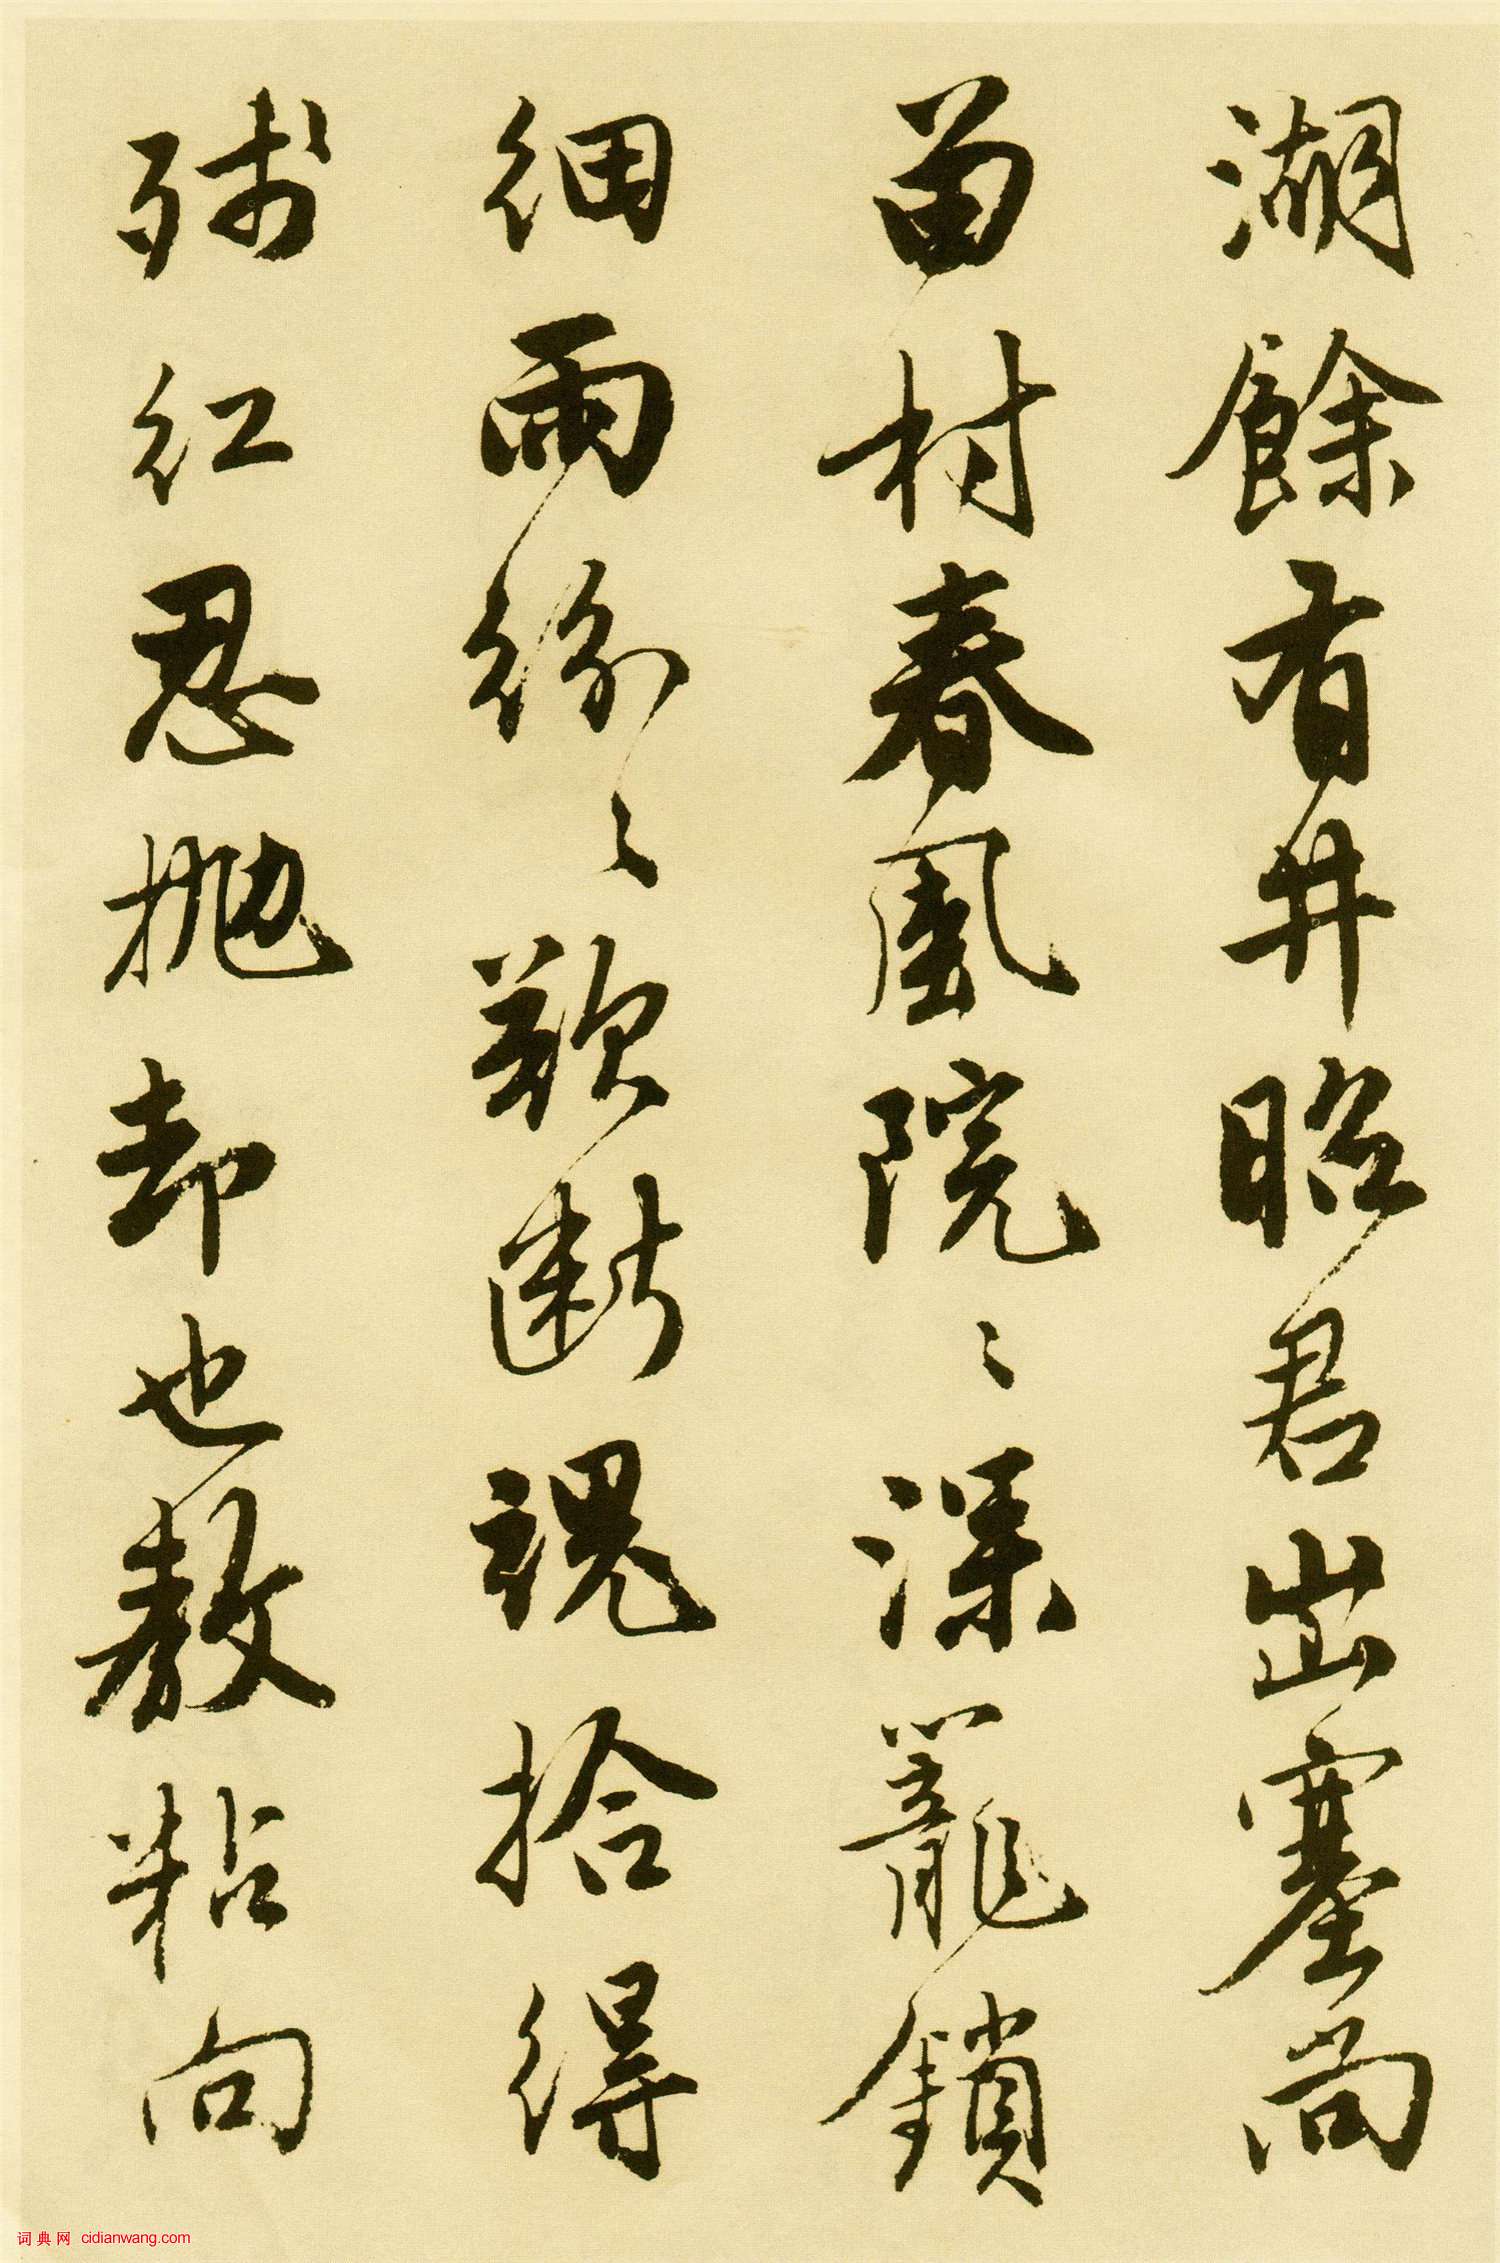 湖餘有井昭君出塞尚
留村春風院〻深籠鎖
細雨紛〻欲斷魂拾得
殘紅忍拋却也教粘向
词典网 cidianwang.com